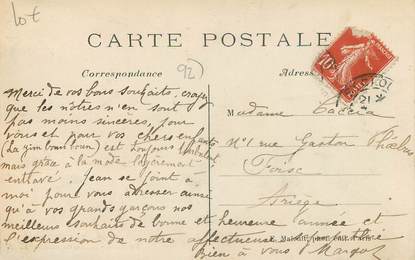 lot
CARTE POSTALE
Correspondance
92
Adresse
10c
Merci de vos bons souhaits, croyez
que les nôtres n'en sont
pas moins sincères, pour
vous et pour vos chers enfants
toujours
mais grâce à la mode légèrement
entravé. Jean se joint à
moi pour vous adresser ainsi
qu'à vos grands garçons nos
meilleurs souhaits de bonne et heureuse année et
l'expression de notre affectueuse sympathie
bien à vous Margot
Madame
No 1 rue Gaston Phoebus
Foix
Ariège